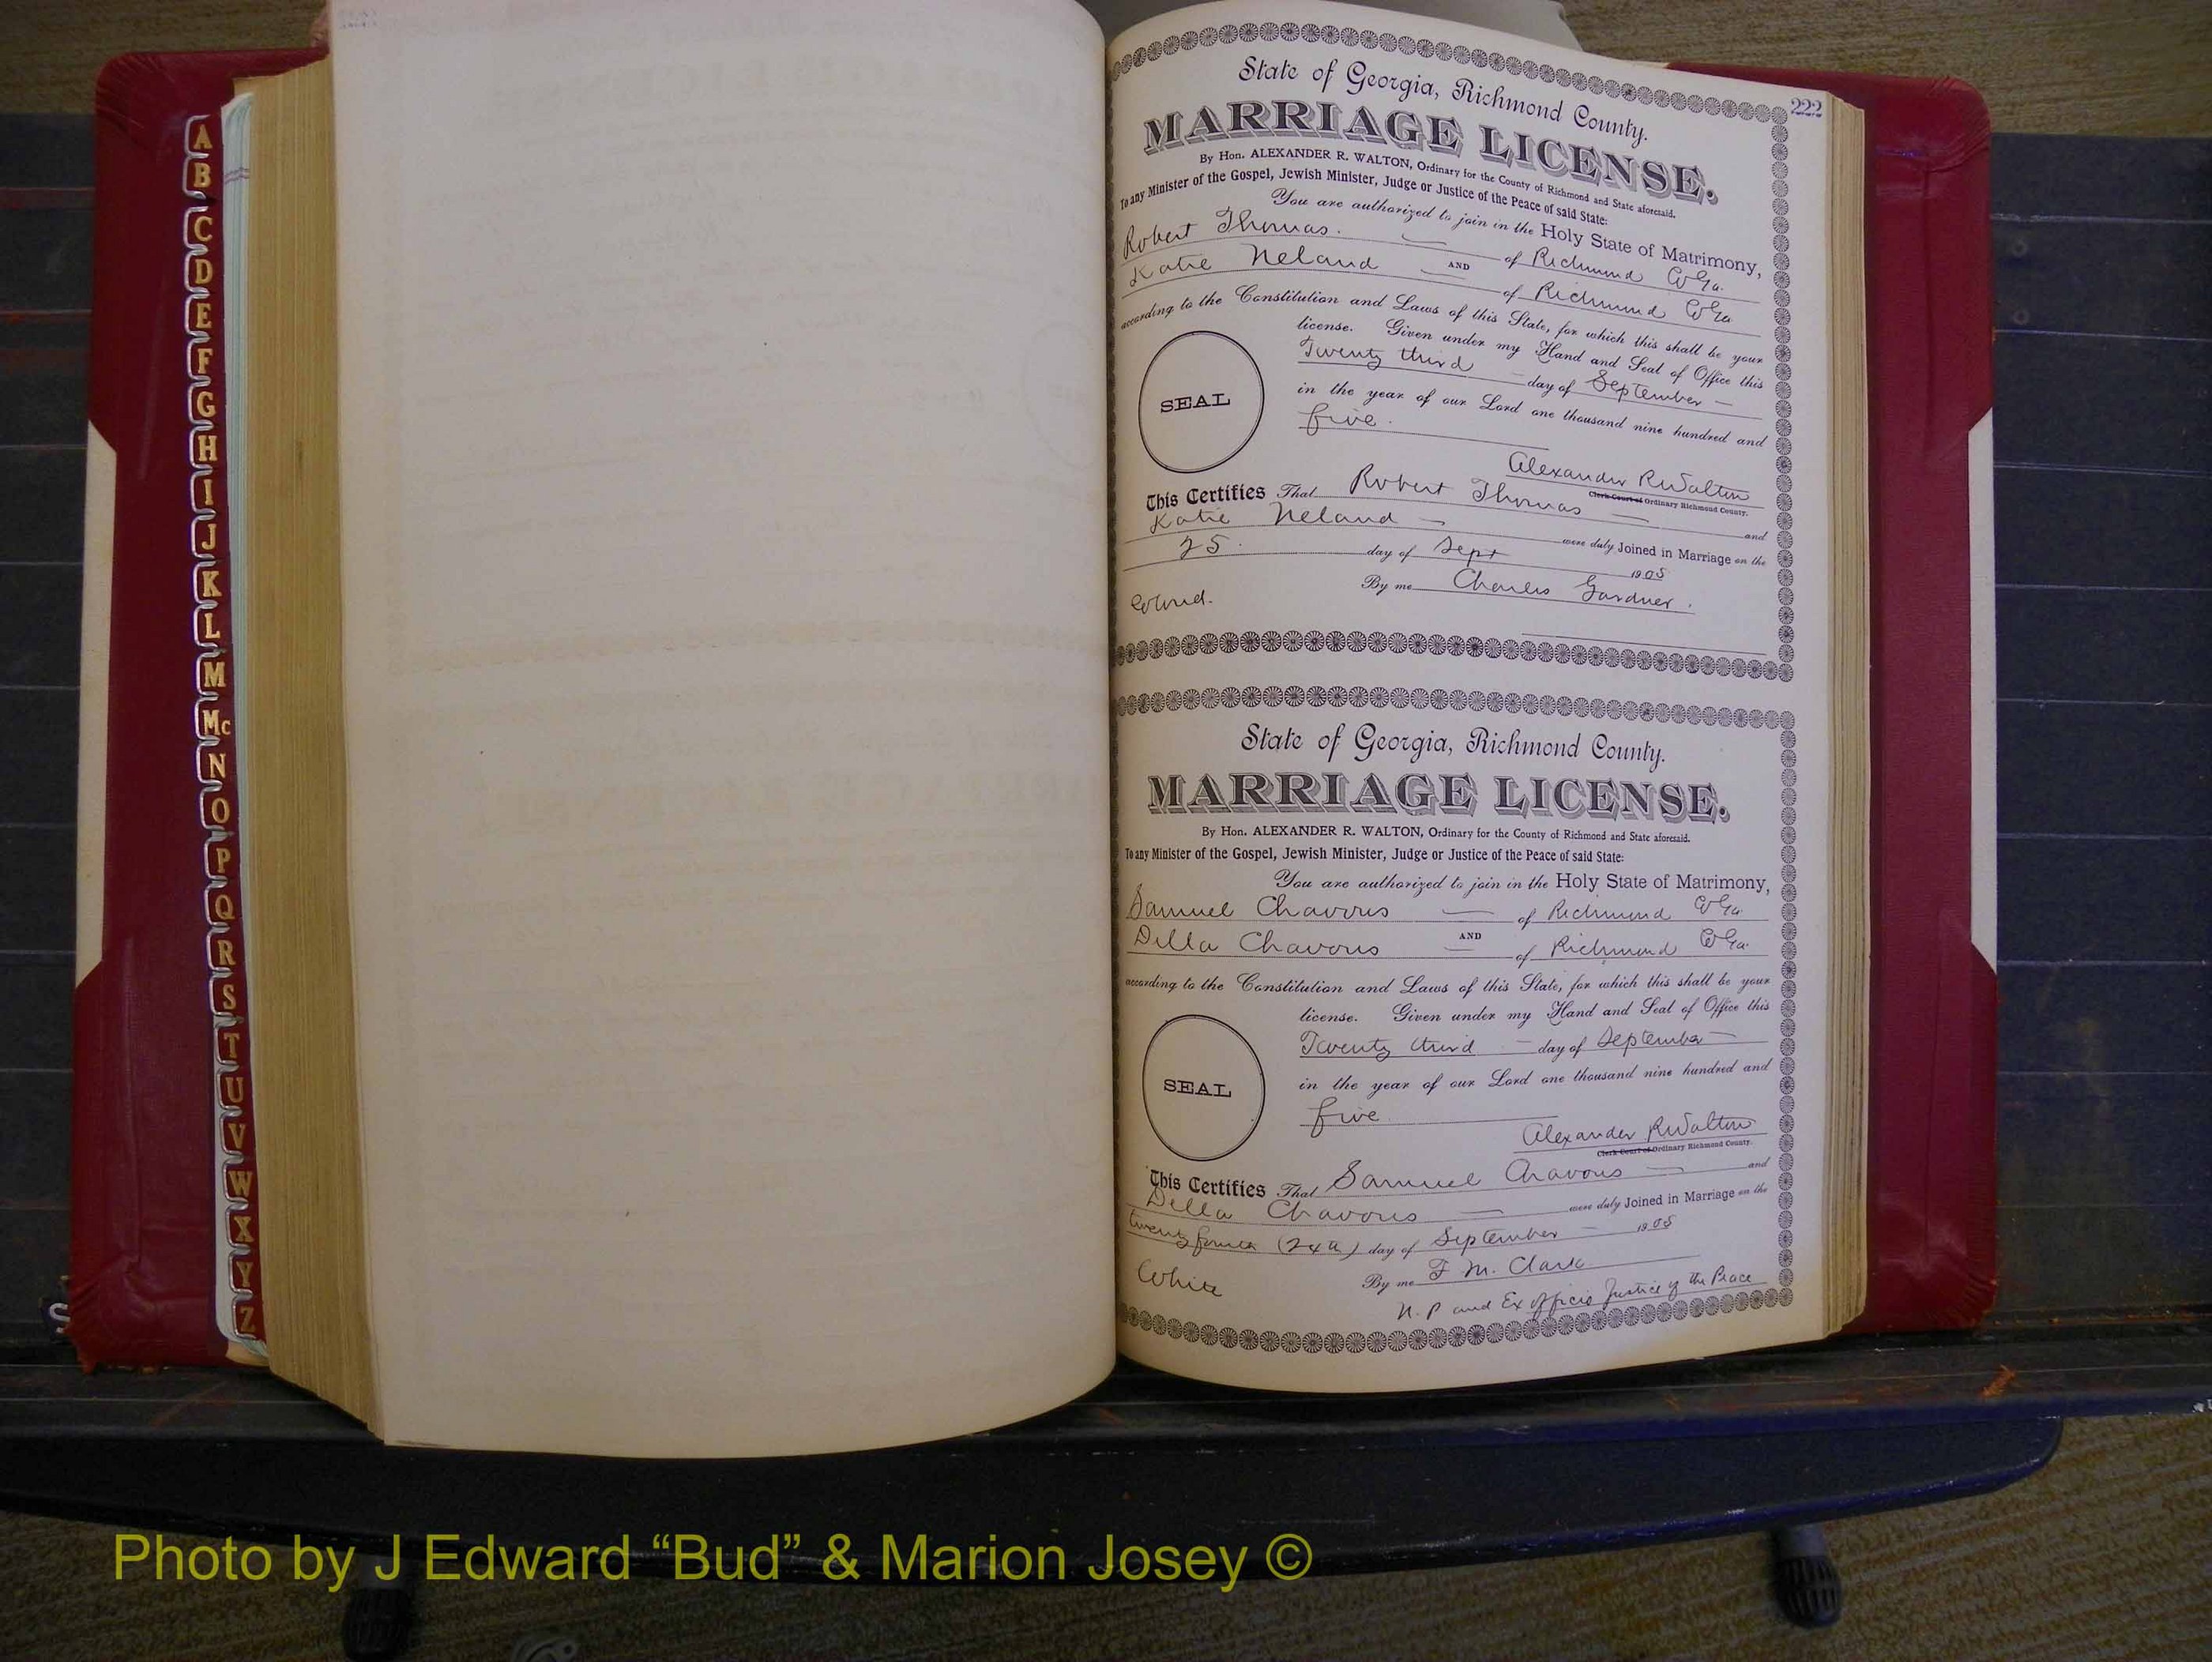 A
B
C
D
E
F
G
H
I
J
K
L
M
Mc
N
O
P
Q
R
S
T
U
V
W
X
Y
Z
222
State of Georgia, Richmond County.
MARRIAGE LICENSE.
By Hon. ALEXANDER R. WALTON, Ordinary for the County of Richmond and State aforesaid.
To any Minister of the Gospel, Jewish Minister, Judge or Justice of the Peace of said State:
You are authorized to join in the Holy State of Matrimony,
Robert Thomas. of Richmond Co Ga.
AND
Katie Neland of Richmond Co Ga
according to the Constitution and Laws of this State, for which this shall be your
license. Given under my Hand and Seal of Office this
Twenty third day of September
in the year of our Lord one thousand nine hundred and
five.
SEAL
Alexander R Walton
Clerk Court of Ordinary Richmond County.
This Certifies That Robert Thomas and
Katie Neland were duly Joined in Marriage on the
25. day of Sept 1905
By me Charles Gardner.
Colored.
State of Georgia, Richmond County.
MARRIAGE LICENSE.
By Hon. ALEXANDER R. WALTON, Ordinary for the County of Richmond and State aforesaid.
To any Minister of the Gospel, Jewish Minister, Judge or Justice of the Peace of said State:
You are authorized to join in the Holy State of Matrimony,
Samuel Chavous of Richmond Co Ga.
AND
Della Chavous of Richmond Co Ga.
according to the Constitution and Laws of this State, for which this shall be your
license. Given under my Hand and Seal of Office this
Twenty third day of September
in the year of our Lord one thousand nine hundred and
five
SEAL
Alexander R Walton
Clerk Court of Ordinary Richmond County.
This Certifies That Samuel Chavous and
Della Chavous were duly Joined in Marriage on the
twenty fourth (24th) day of September 1905
By me F. M. Clark
White
N. P and Ex officio Justice of the Peace
Photo by J Edward “Bud” & Marion Josey ©